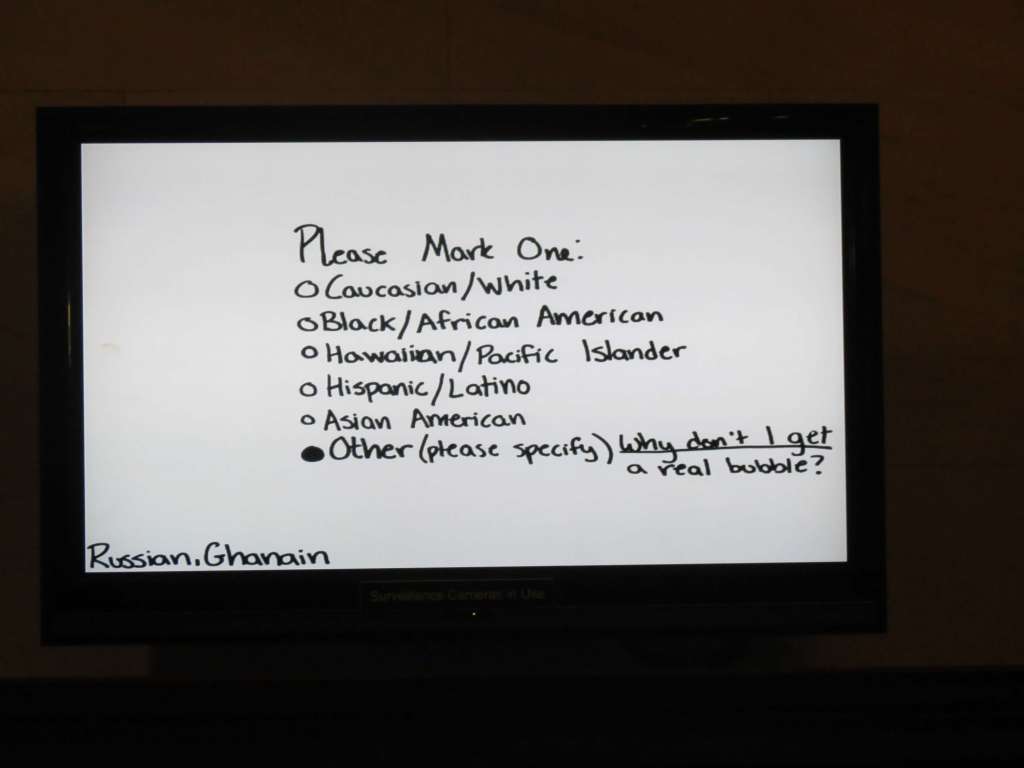 Please Mark One:
Caucasian/White
Black/African American
Hawaiian/Pacific Islander
Hispanic/Latino
Asian American
Other (please specify) Why don't I get
a real bubble?
Russian, Ghanain
Surveillance Cameras in Use